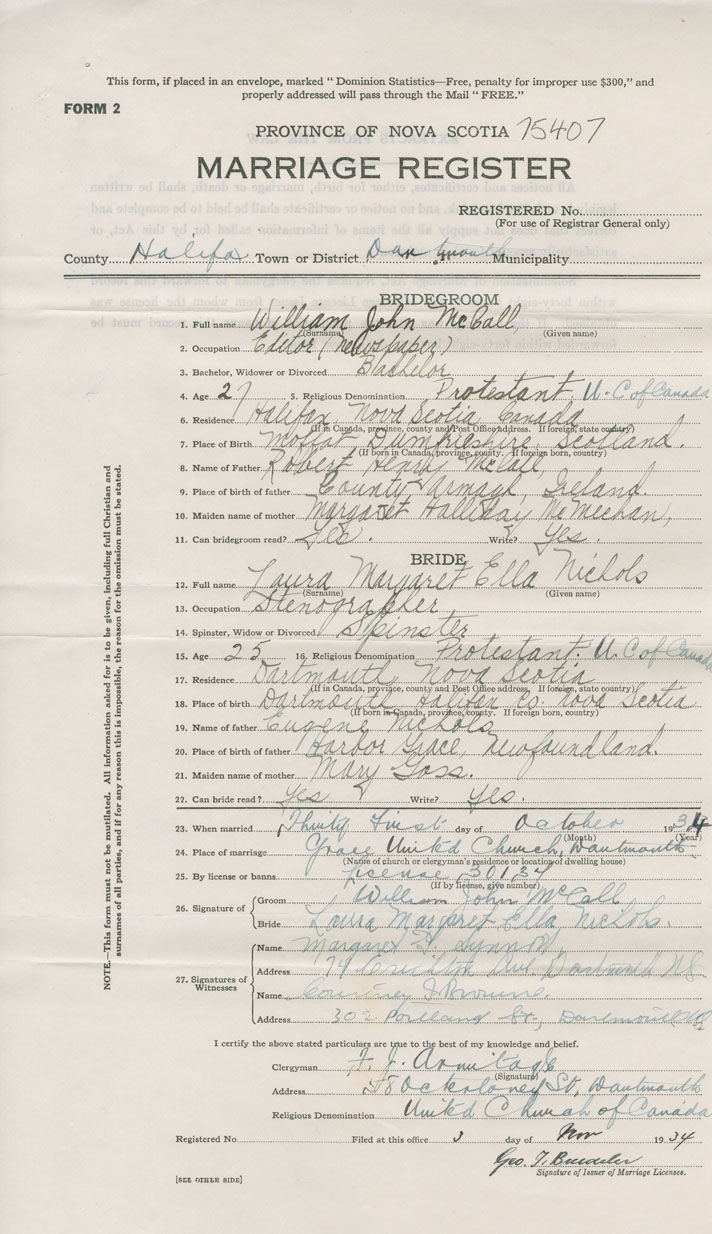 This form, if placed in an envelope, marked " Dominion Statistics—Free, penalty for improper use $300," and
properly addressed will pass through the Mail " FREE."
FORM 2
PROVINCE OF NOVA SCOTIA 75407
MARRIAGE REGISTER
REGISTERED No.
(For use of Registrar General only)
County Halifax Town or District Dartmouth Municipality
BRIDEGROOM
1. Full name William John McCall,
(Surname) (Given name)
2. Occupation Editor (newspaper)
3. Bachelor, Widower or Divorced Bachelor
4. Age 27 5. Religious Denomination Protestant. U. C of Canada
6. Residence Halifax, Nova Scotia Canada
(If in Canada, province, county and Post Office address. If foreign, state country)
7. Place of Birth Moffat Dumfriesshire, Scotland.
(If born in Canada, province, county. If foreign born, country)
8. Name of Father Robert Henry McCall,
9. Place of birth of father County Armagh, Ireland.
10. Maiden name of mother Margaret Halliday McMeehan,
11. Can bridegroom read? Yes. Write? Yes.
BRIDE
12. Full name Laura Margaret Ella Nichols
(Surname) (Given name)
13. Occupation Stenographer
14. Spinster, Widow or Divorced Spinster
15. Age 25 16. Religious Denomination Protestant. U. C of Canada
17. Residence Dartmouth Nova Scotia
(If in Canada, province, county and Post Office address. If foreign, state country)
18. Place of birth Dartmouth Halifax Co Nova Scotia
(If born in Canada, province, county. If foreign born, country)
19. Name of father Eugene Nichols
20. Place of birth of father Harbor Grace, Newfoundland.
21. Maiden name of mother Mary Goss.
22. Can bride read? Yes Write? Yes.
23. When married Thirty First day of October 1934
(Month) (Year)
24. Place of marriage Grace United Church, Dartmouth
(Name of church or clergyman's residence or location of dwelling house)
25. By license or banns License 30134
(If by license, give number)
26. Signature of Groom William John McCall
Bride Laura Margaret Ella Nichols.
27. Signatures of Witnesses
Name Margaret
Address 74 Crichton Ave Dartmouth N.S.
Name Courtney J Browne.
Address 302 Portland St., Dartmouth N.S
I certify the above stated particulars are true to the best of my knowledge and belief.
Clergyman F. J. Armitage
(Signature)
Address 48 Ochterloney St, Dartmouth
Religious Denomination United Church of Canada
Registered No. Filed at this office 3 day of Nov 1934
Geo.
Signature of Issuer of Marriage Licenses.
[SEE OTHER SIDE]
NOTE.—This form must not be mutilated. All information asked for is to be given, including full Christian and
surnames of all parties, and if for any reason this is impossible, the reason for the omission must be stated.